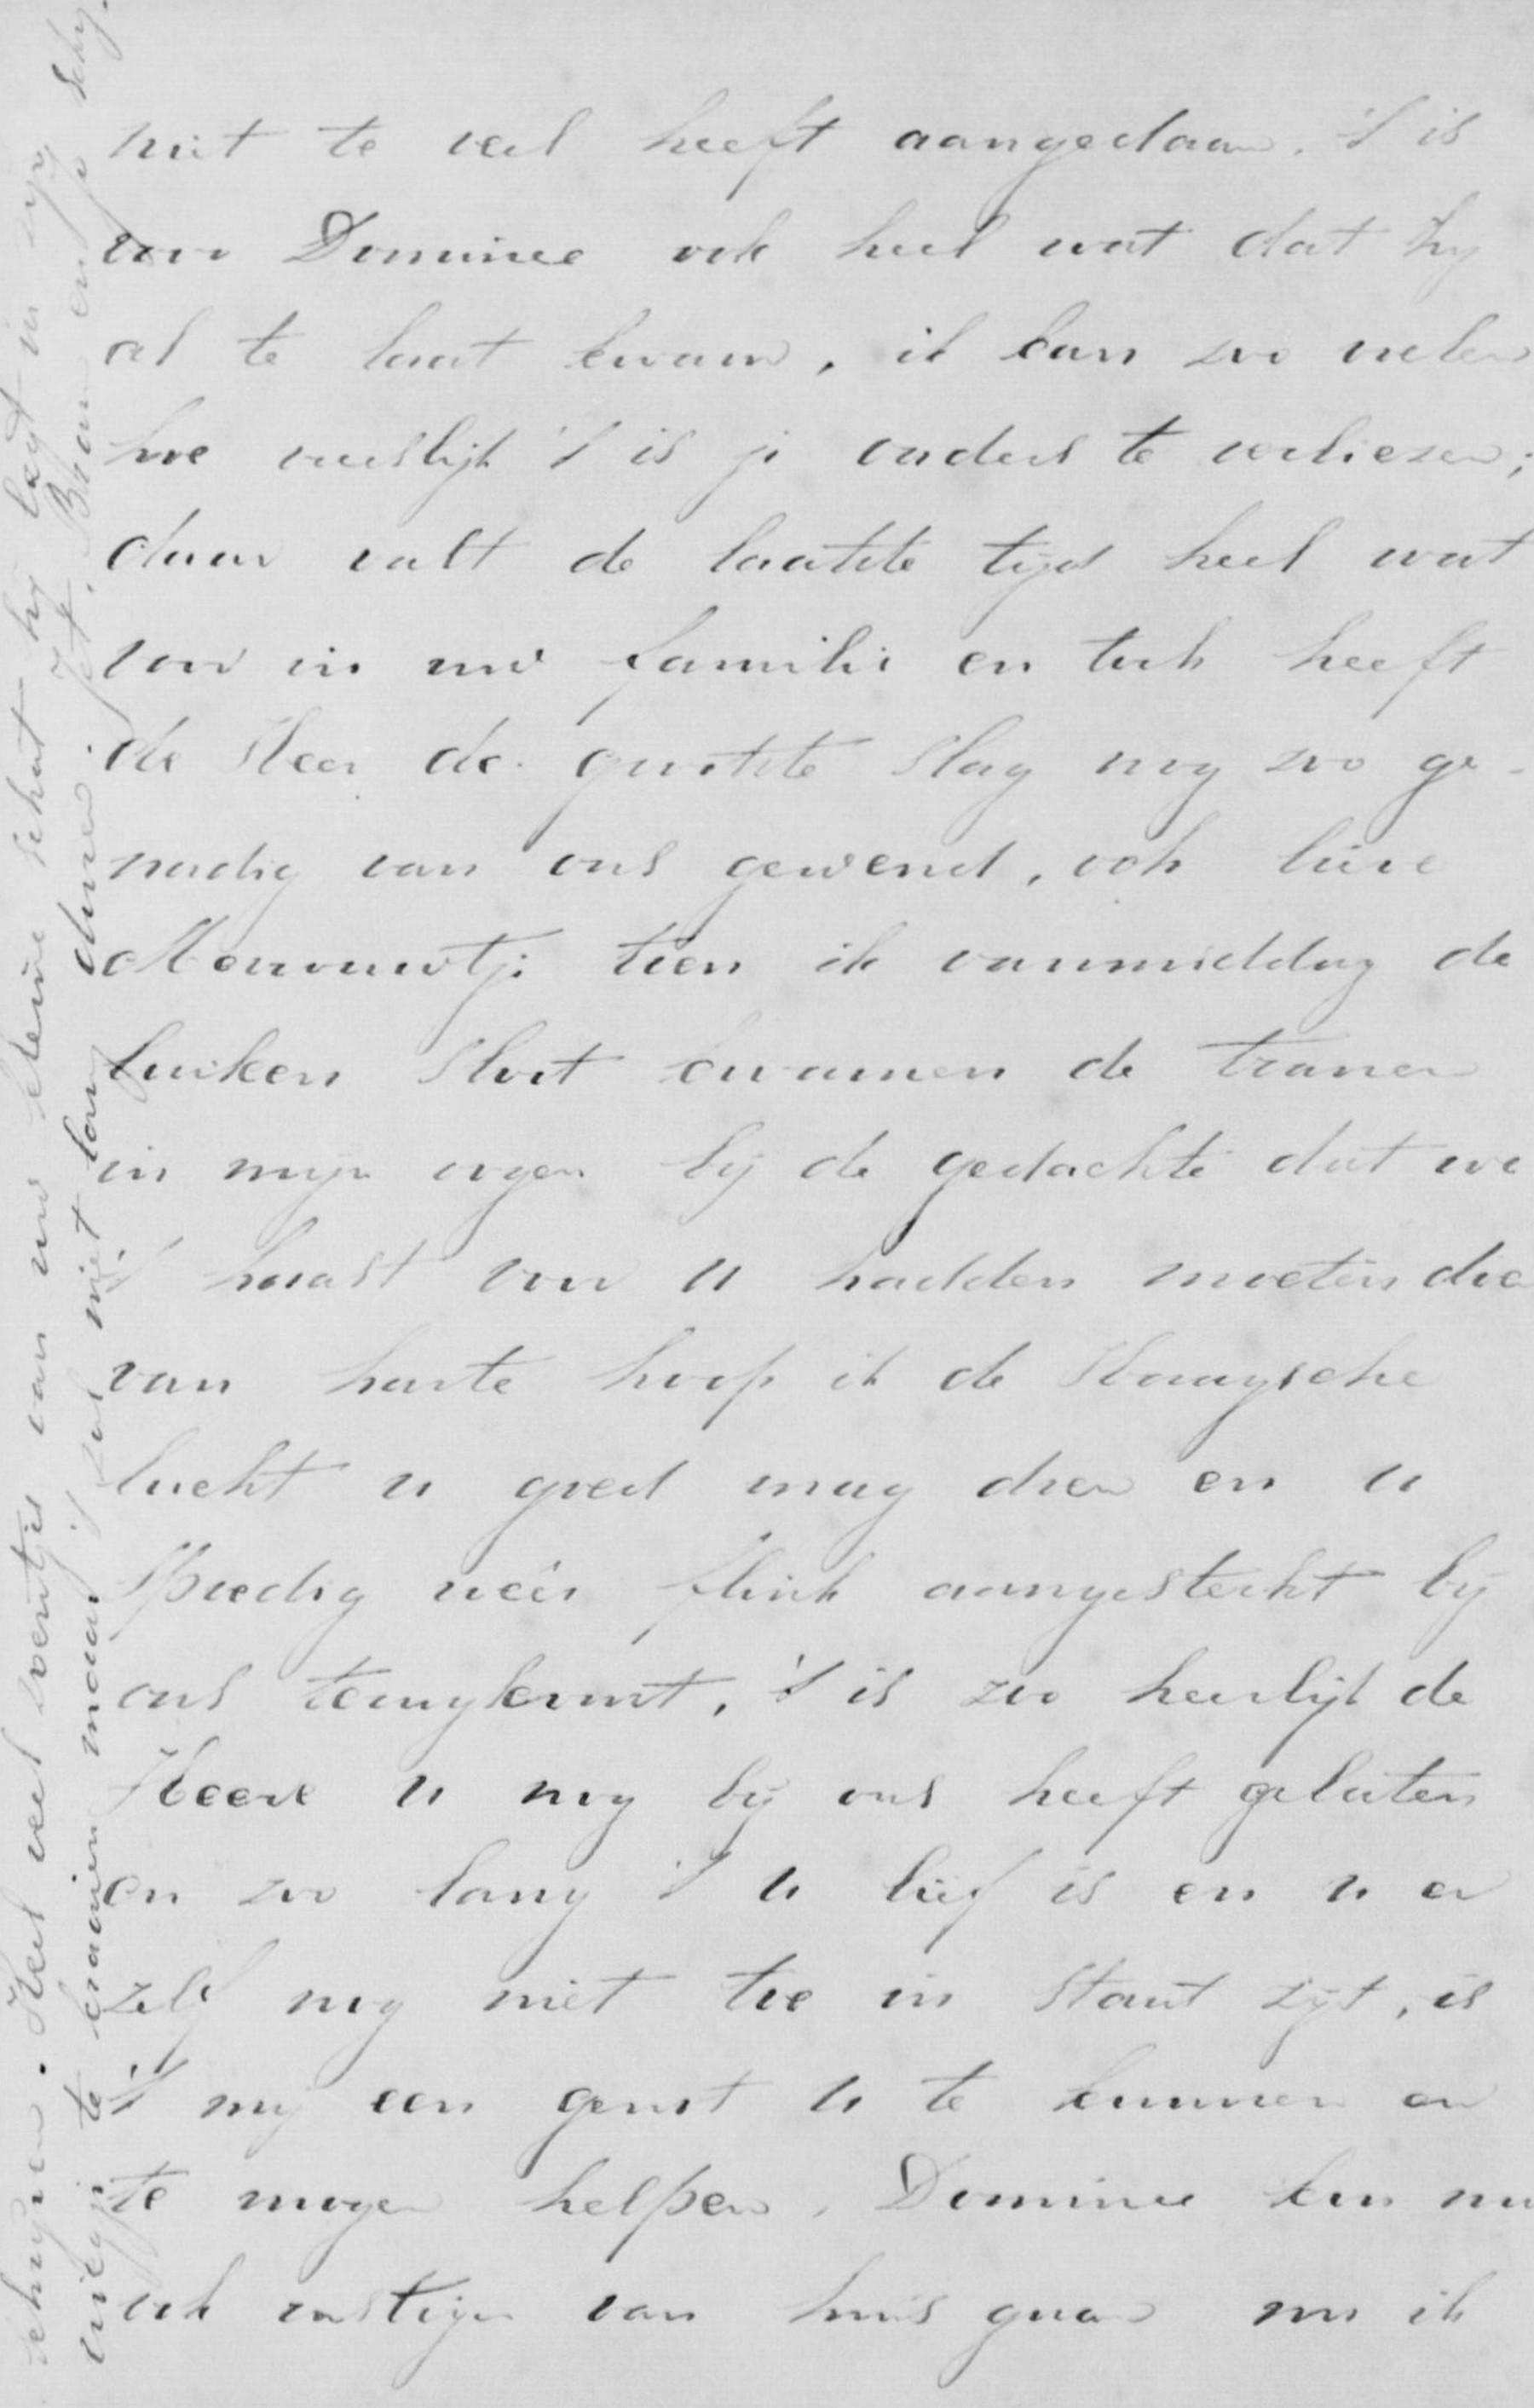 niet te veel heeft aangedaan. 't is
voor Dominee ook heel wat dat hij
al te laat kwam, ik kan zoo
hoe vreeslijk 't is je ouders te verliezen;
daar valt de laatste tijd heel wat
voor in uw familie en toch heeft
de Heer de grootste slag nog zoo ge-
nadig van ons gewend, och lieve
Mevrouwtje toen ik vanmiddag de
luiken sloot kwamen de tranen
in mijn oogen bij de gedachte dat we
't haast voor u hadden moeten doen
van harte hoop ik de Haagsche
lucht u goed mag doen en u
spoedig weer flink aangesterkt bij
ons terugkomt, 't is zoo heerlijk de
Heere u nog bij ons heeft gelaten
en zoo lang 't u lief is en u er
zelf nog niet toe in staat zijt, is
't mij een genot u te kunnen en
te mogen helpen, Dominee kan nu
ook rustiger van huis gaan nu ik
schrijven. Heel veel zoentjes van uw kleine schat hij lagt in zijn
wiegje te kraaien maar 't zal niet lang duren. Jet. Bram en Jo